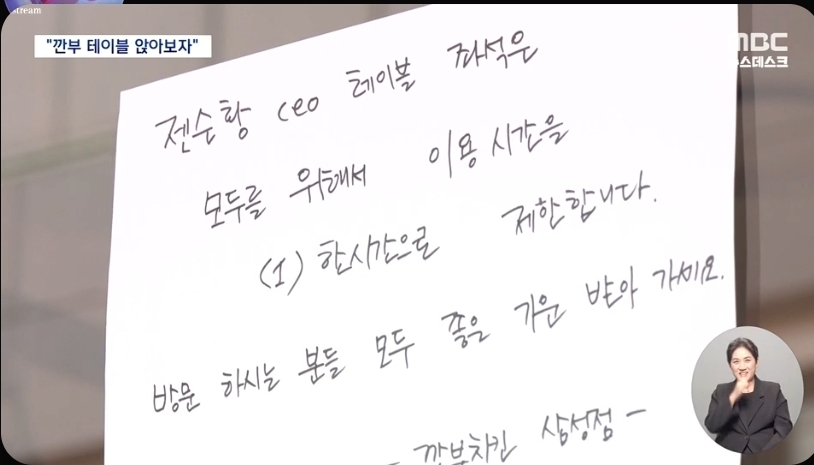 stream
"깐부 테이블 앉아보자"
MBC
뉴스데스크
젠슨황 ceo 테이블 좌석은
모두를 위해서 이용시간을
(1) 한시간으로 제한합니다.
방문 하시는 분들 모두 좋은 기운 받아 가세요.
- 깐부치킨 삼성점 -